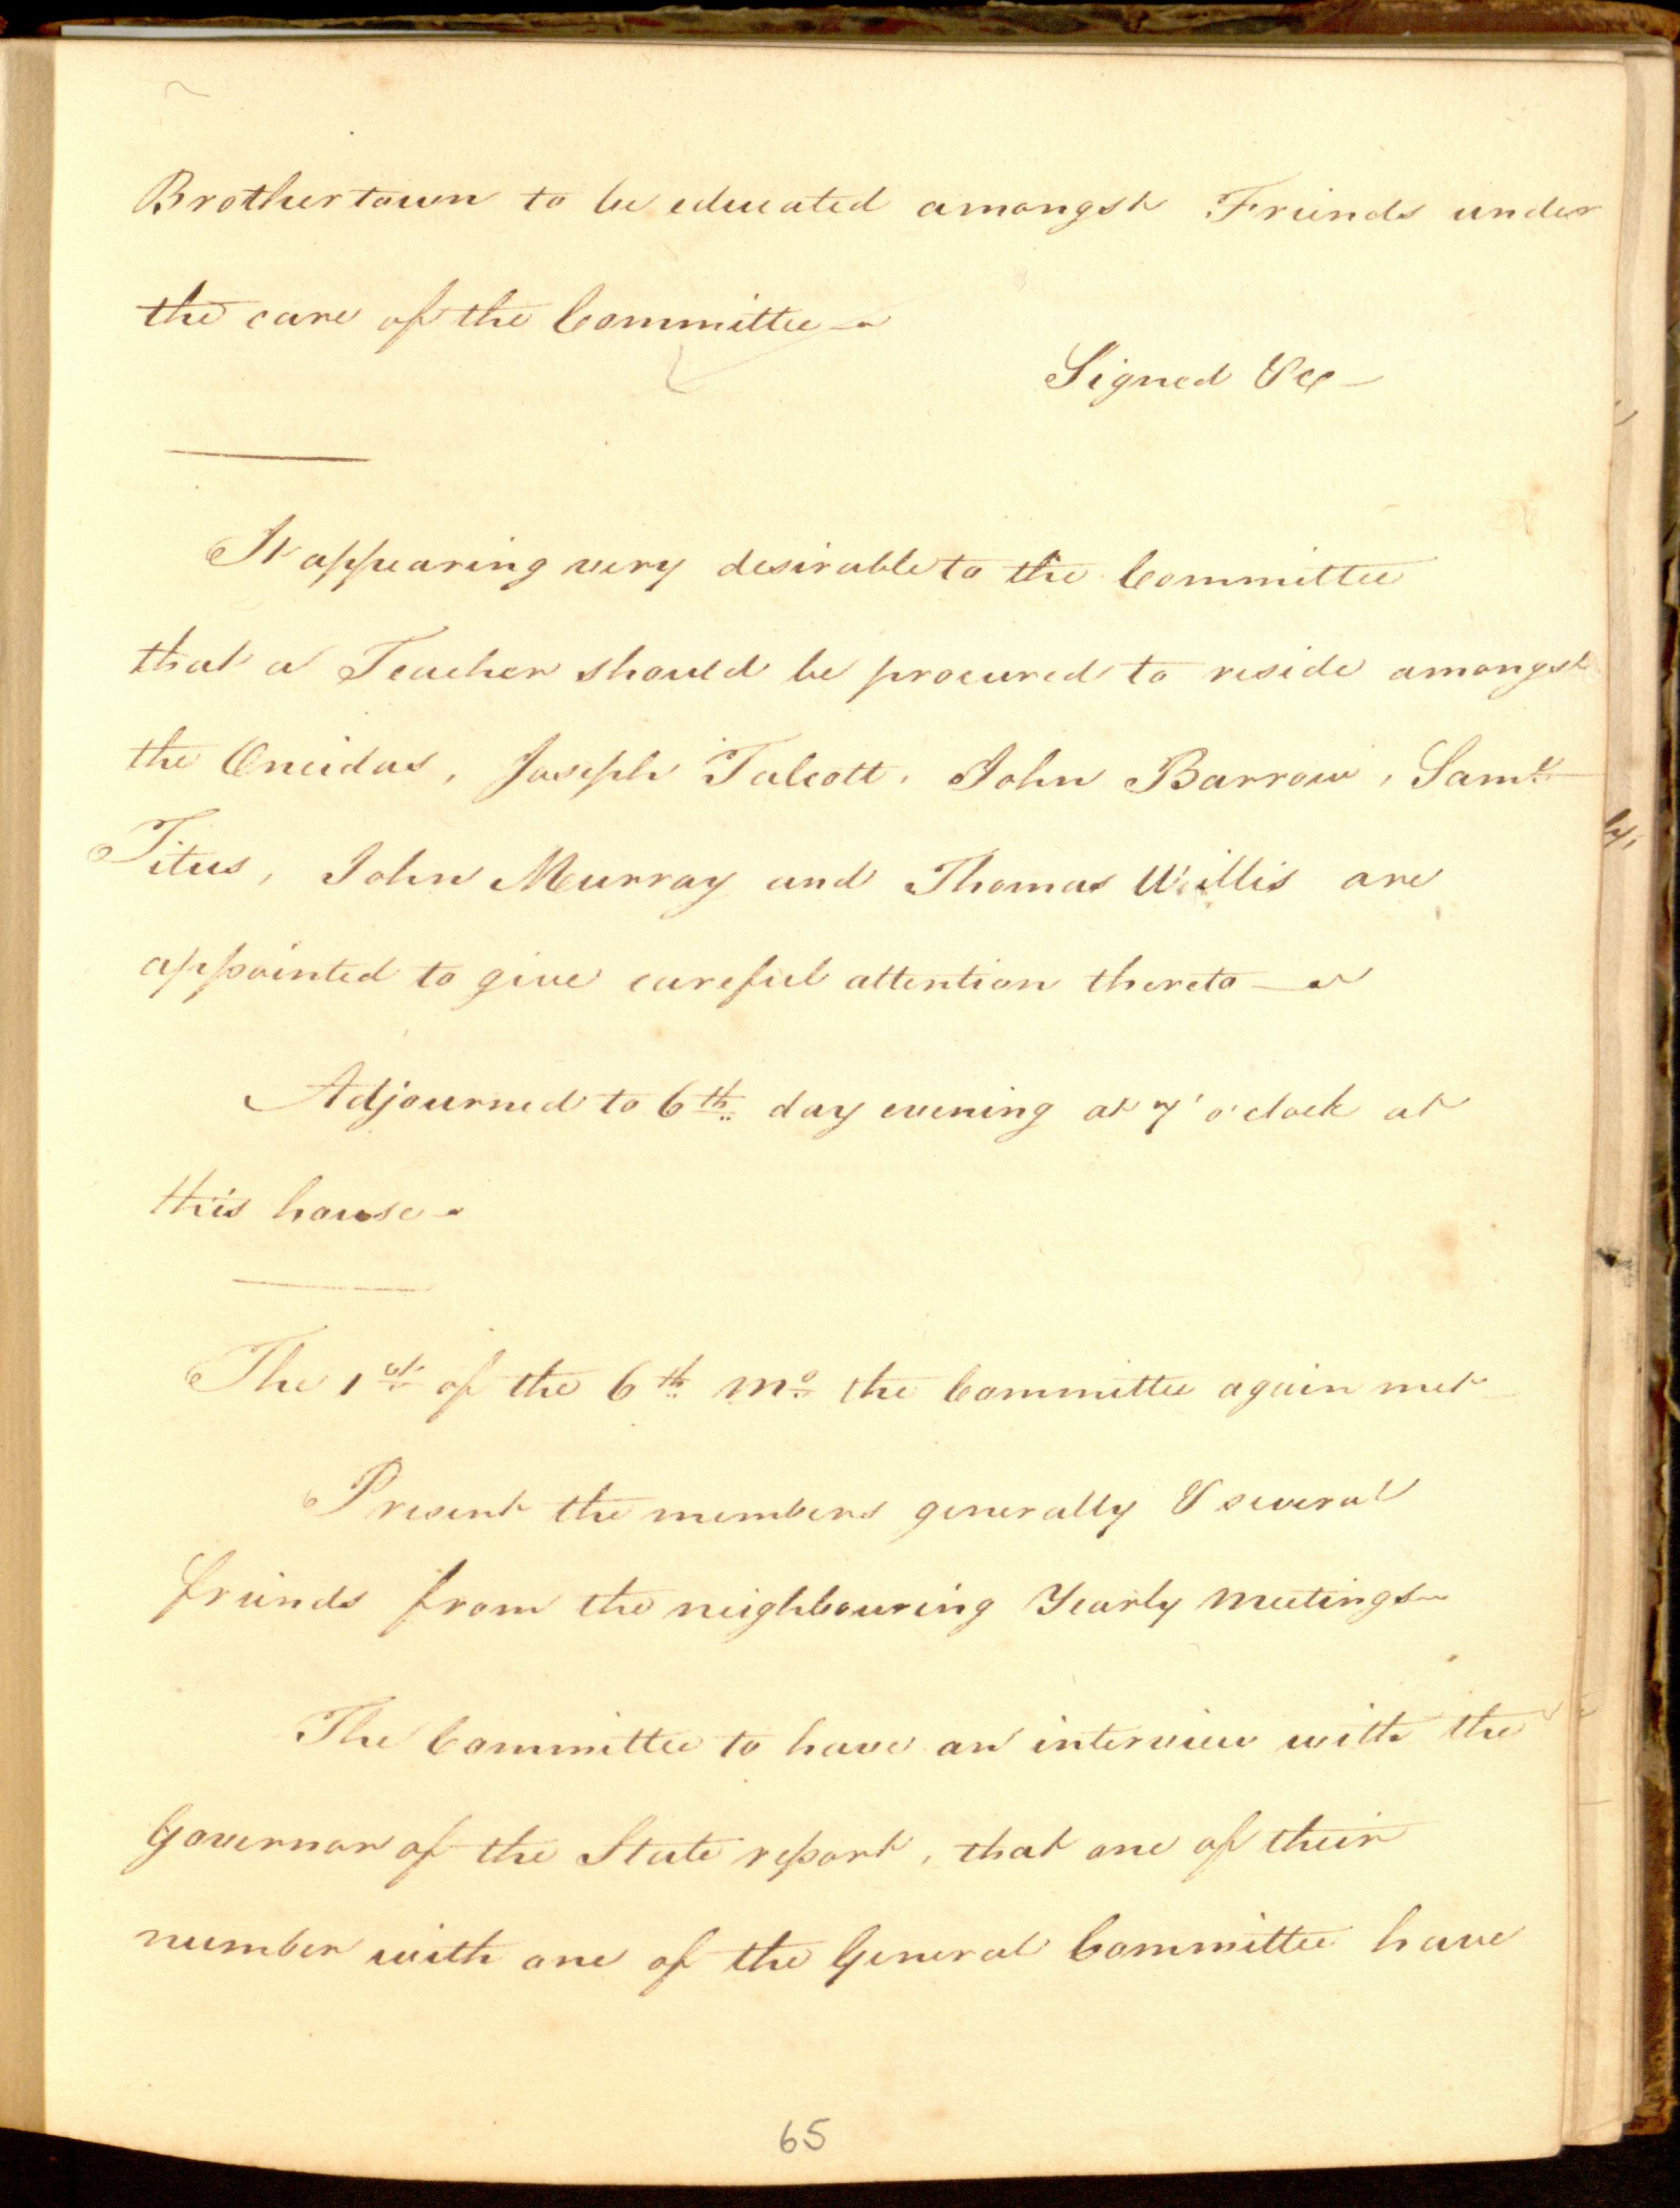 Brothertown to be educated amongst Friends under
the care of the Committee—
Signed &c—
It appearing very desirable to the Committee
that a Teacher should be procured to reside amongst
the Oneidas, Joseph Talcott, John Barrow, Saml.
Titus, John Murray and Thomas Willis are
appointed to give careful attention thereto—
Adjourned to 6th. day evening at 7 o'clock at
this house—
The 1st. of the 6th. mo. the Committee again met
Present the members generally & several
friends from the neighbouring Yearly Meetings—
The Committee to have an interview with the
Governor of the State report, that one of their
number with one of the General Committee have
65